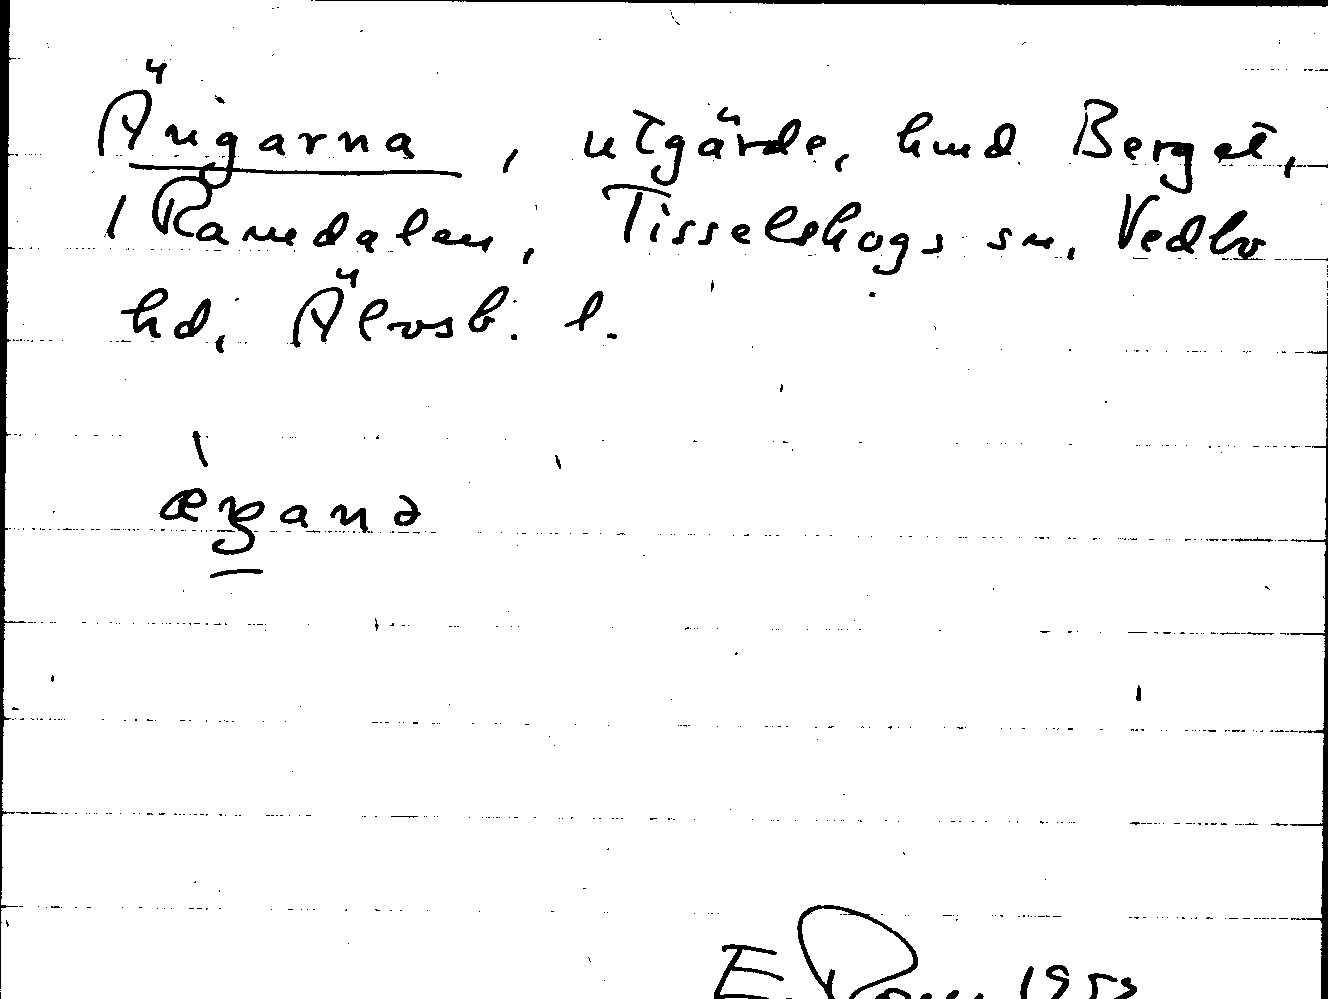 Ängarna, utgärde, hmd Berget,
1 Ramdalen, Tisselskogs sn, Vedbo
hd, Älvsb. l.
E. 1953